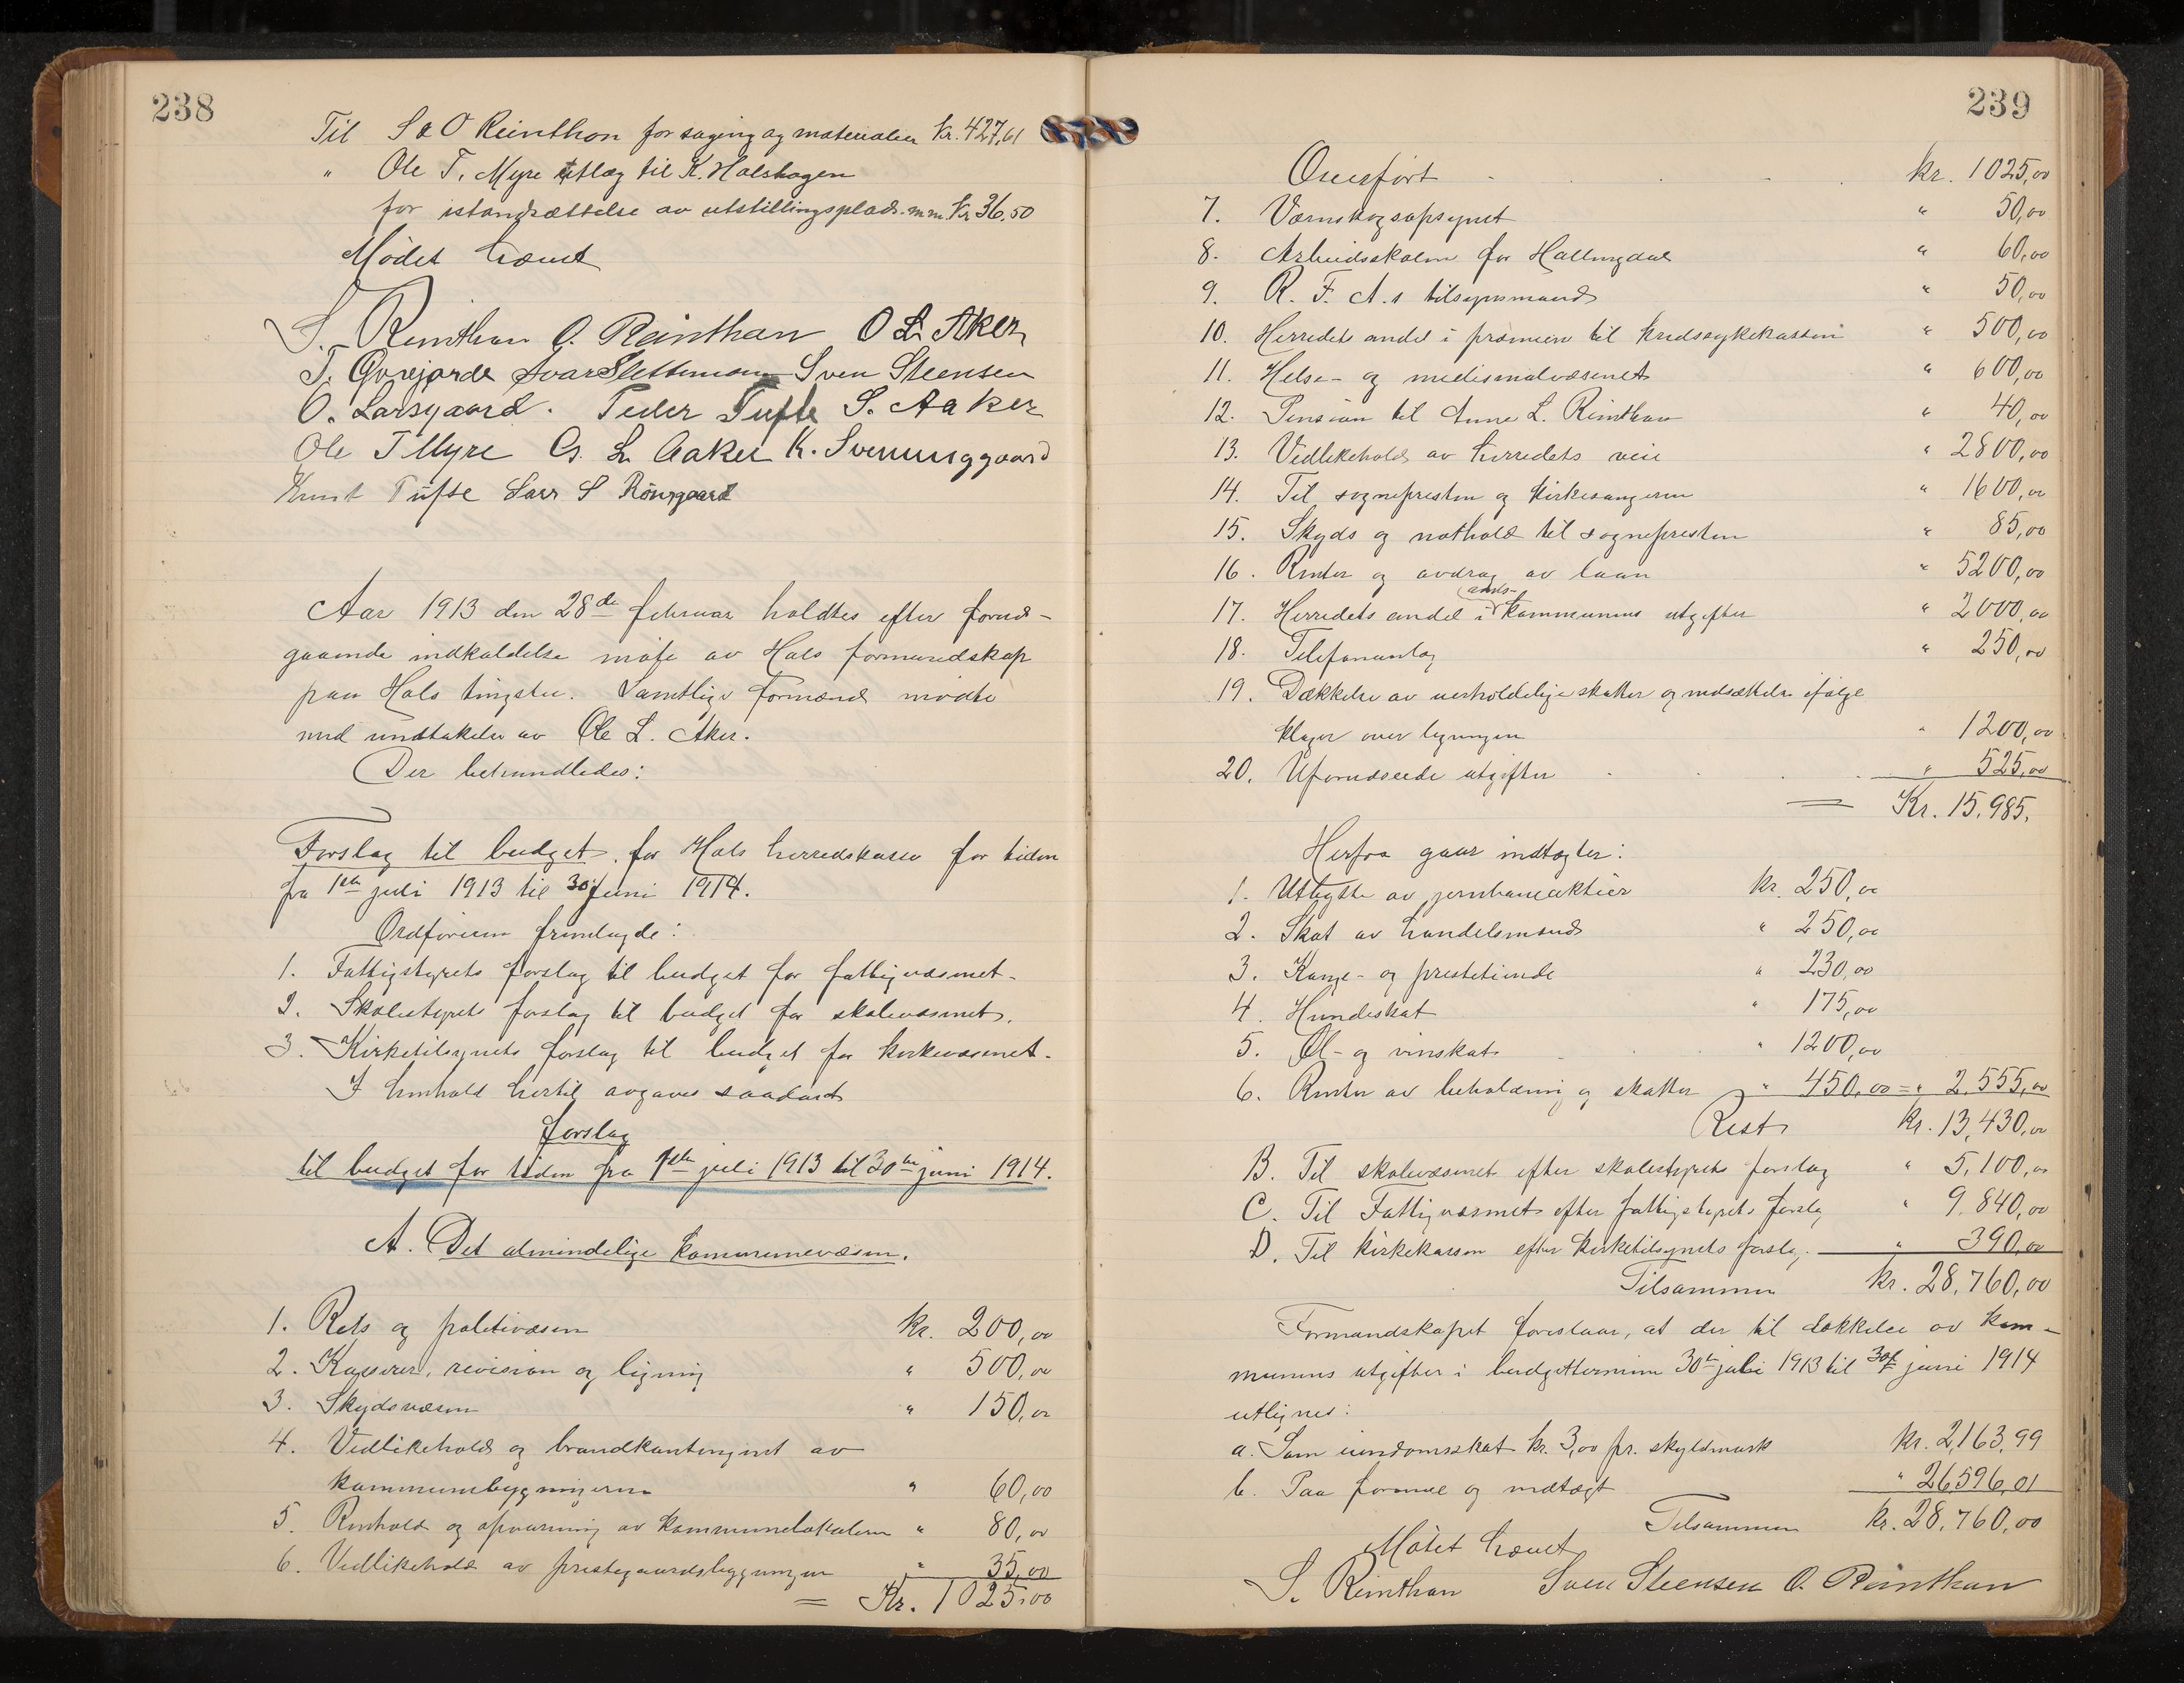 238
Til S & O Reinthon for saging og materialier kr. 427,61
" Ole T. Myre utlæg til K. Halshagen
for istandsættelse av utstillingsplads m.m. Kr 36,50
Mødet hævet
S. Reinthon O. Reinthon O L Aker
T. Øvrejorde Ivar Slettemoen Sven Steensen
O. Larsgaard. Peder Tufte S. Aaker
Ole T Myre G. L. Aaker K. Svenunggaard
Knut Tufte Lars S Rønsgaard
Aar 1913 den 28de februar holdtes efter forut-
gaaende indkaldelse møte av Hols formandskap
paa Hols tingstue. Samtlige formænd mødte
med undtakelse av Ole L. Aker.
Der behandledes:
Forslag til budget for Hols herredskasse for tiden
fra 1ste juli 1913 til 30 juni 1914.
Ordføreren fremlagde:
1. Fattigstyrets forslag til budget for fattigvæsenet.
2. Skolestyrets forslag til budget for skolevæsenet.
3. Kirketilsynets forslag til budget for kirkevæsenet.
I henhold hertil avgaves saadant
forslag
til budget for tiden fra 1ste juli 1913 til 30te juni 1914.
A. Det almindelige kommunevæsen.
1. Rets og politivæsen kr. 200,00
2. Kasserer, revision og ligning " 500,00
3. Skydsvæsen " 150,00
4. Vedlikehold og brandkontingent av
kommunebygningerne " 60,00
5. Renhold og opvarming av kommunelokalerne " 80,00
6. Vedlikehold av prestegaardsbygninger " 35,00
= Kr. 1025.00
239
Overført kr. 1025,00
7. Værnskogsopsynet " 50,00
8. Arbeidsskolen for Hallingdal " 60,00
9. R. F. A.s tilsynsmand " 50,00
10. Herredets andel i præmien til kredssykekassen " 500,00
11. Helse- og medisinalvæsenet " 600,00
12. Pension til Anne L. Reinthon " 40,00
13. Vedlikehold av herredets veie " 2800,00
14. Til sognepresten og kirkesangeren " 1600,00
15. Skyds og nathold til sognepresten " 85,00
16. Renter og avdrag av laan " 5200,00
17. Herredets andel i amts-kommunens utgifter " 2000,00
18. Telefonanlæg " 250,00
19. Dækkelse av uerholdelige skatter og nedsættelse ifølge
klager over ligningen " 1200,00
20. Uforudseede utgifter " 525,00
= Kr. 15.985.
Herfra gaar indtægter:
1. Utbytte av jernbaneaktier kr. 250,00
2. Skat av handelsmænd " 250,00
3. Konge- og prestetiende " 230,00
4. Hundeskat " 175,00
5. Øl- og vinskat " 1200,00
6. Renter av beholdning og skatter " 450,00 = " 2.555,00
Rest kr. 13,430,00
B. Til skolevæsenet efter skolestyrets forslag " 5,100,00
C. Til Fattigvæsenet efter fattigstyrets forslag " 9.840,00
D. Til kirkekassen efter kirketilsynets forslag. " 390,00
Tilsammen kr. 28,760,00
Formandskapet foreslaar, at der til dækkelse av kom-
munens utgifter i budgetterminen 30te juli 1913 til 30te juni 1914
utlignes:
a. Som eiendomsskat kr. 3,00 pr. skyldmark kr. 2,163,99
b. Paa formue og indtægt " 26596,01
Tilsammen kr. 28,760,00
Møtet hævet
S. Reinthon Sven Steensen O. Reinthon